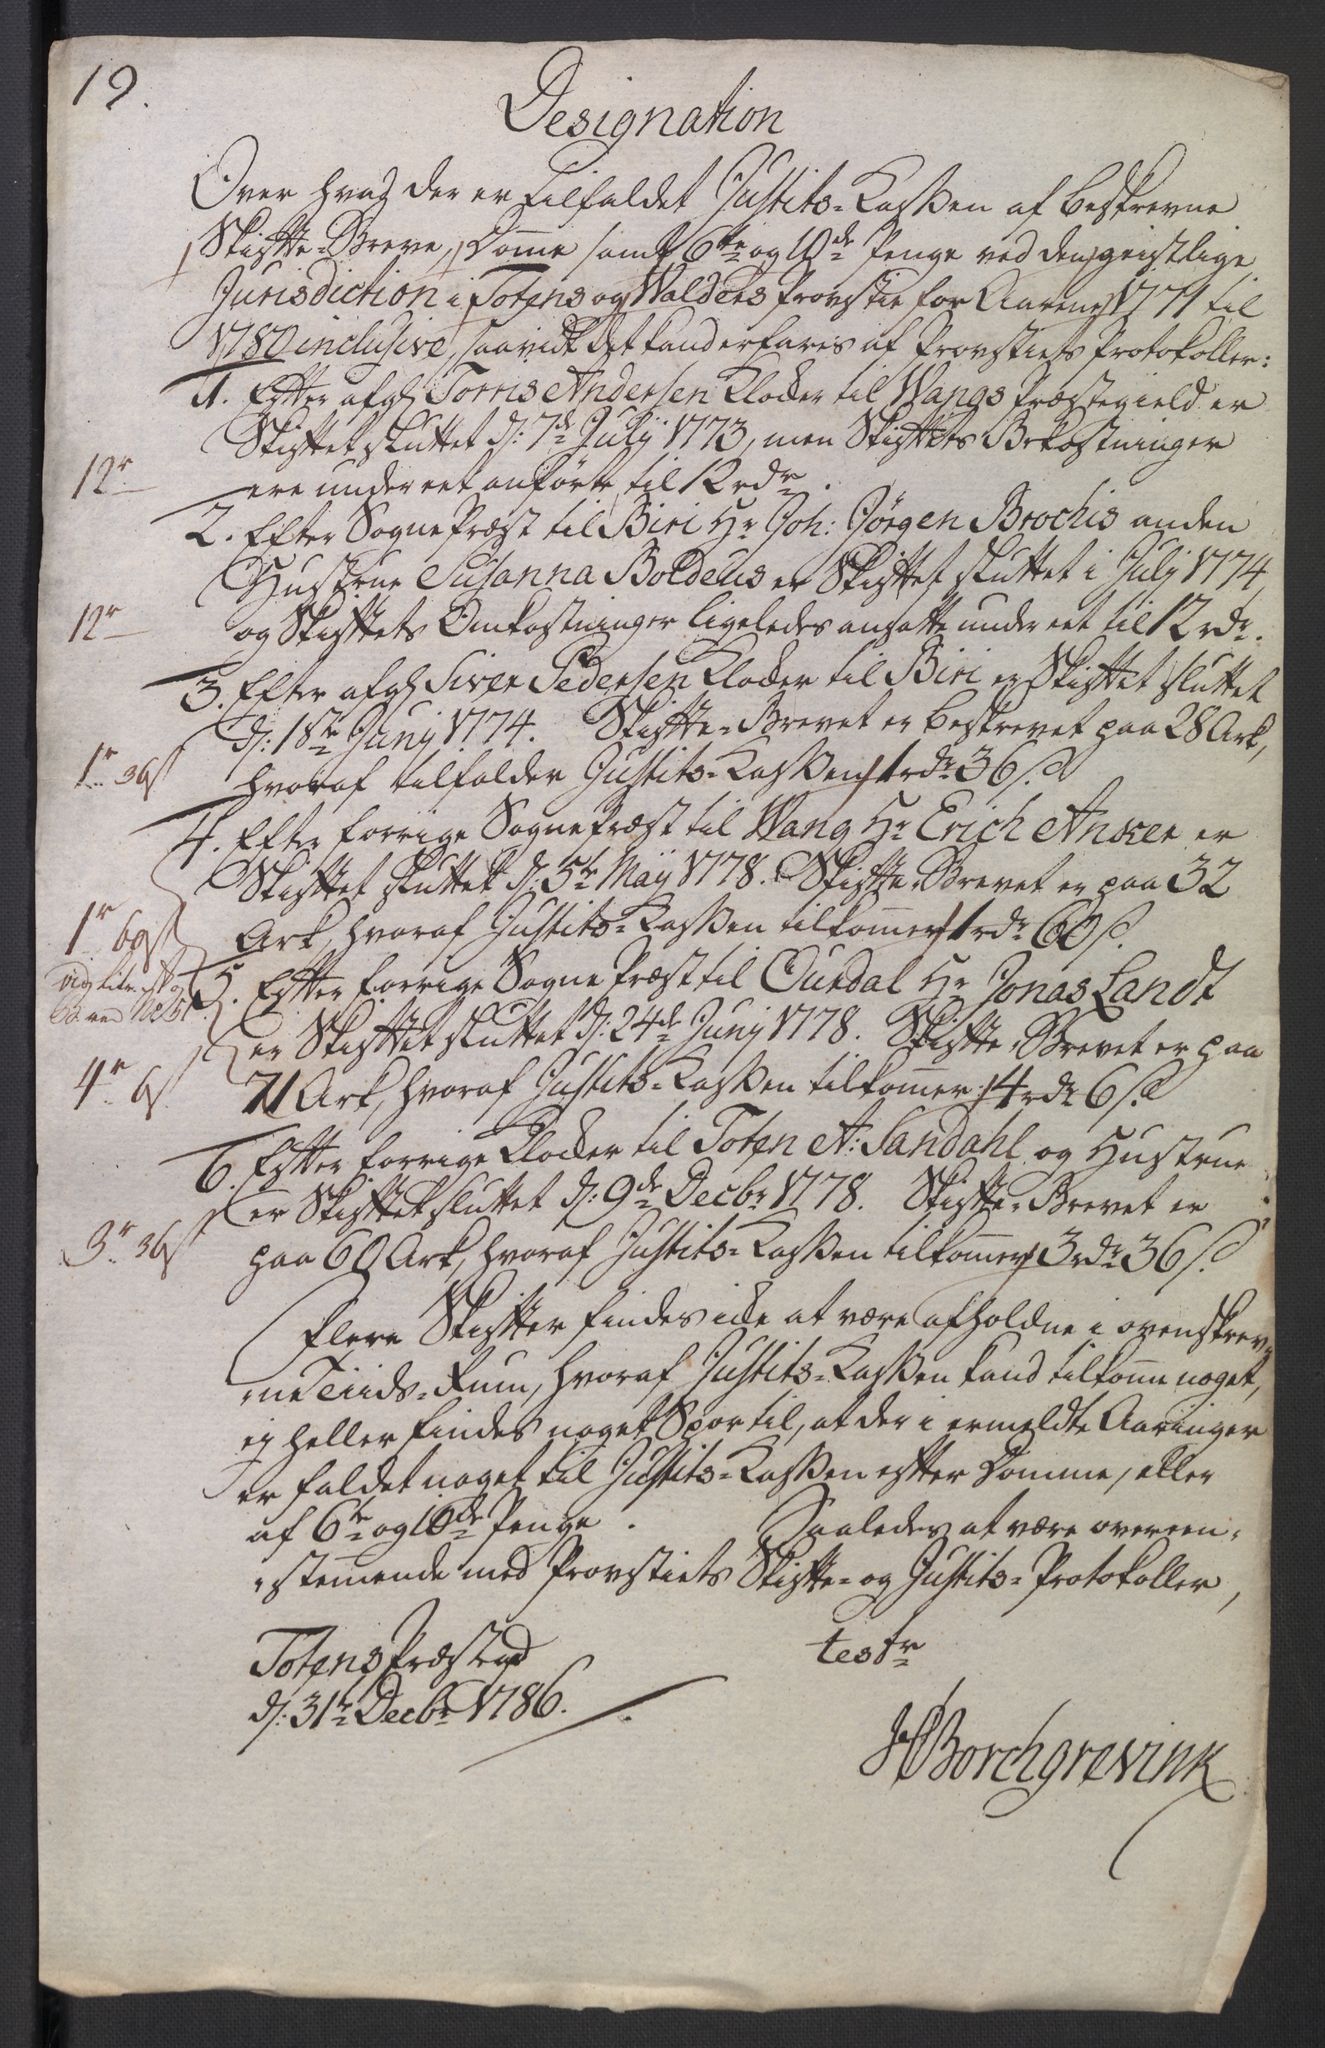 19.
Designation
Over hvad der er tilfaldet Justits-Kassen af beskrevne
Skifte-Breve, Domme samt 6te og 10de Penge ved den geistlige
Jurisdiction i Totens og Walders Provstie for Aarene 1771 til
1780 inclusive, saavidt det kand erfares af Provstiets Protokoller:
1. Efter afgl Torris Andersen Klocker til Wangs Præstegield er
Skiftet sluttet d: 7de Julij 1773, men Skiftets Bekostninger
12r ere under eet anførte til 12 rdr.
2. Efter Sogne Præst til Biri Hr Joh: Jörgen Brochis anden
Hustrue Susanna Boldeus er Skiftet sluttet i Julj 1774,
12r og Skiftets Omkostninger ligeledes ansatte under eet til 12 rdr.
3. Efter afgl Siver Pedersen Klocker til Biri er Skiftet sluttet
d: 18de Junj 1774. Skifte-Brevet er beskrevet paa 28 Ark,
1r 36s hvoraf tilfalder Justits-Kassen 1 rdr 36 s.
4. Efter forrige Sogne Præst til Wang Hr Erich Ancher er
Skiftet sluttet d. 5te Maij 1778. Skifte-Brevet er paa 32
1r 60s Ark, hvoraf Justits-Kassen tilkommer 1 rdr 60 s.
5. Efter forrige Sogne Præst til Ourdal Hr Jonas Landt
er Skiftet sluttet d: 24de Junj 1778. Skifte-Brevet er paa
4r 6s 71 Ark, hvoraf Justits-Kassen tilkommer 4 rdr 6 s.
6. Efter forrige Klocker til Toten A: Sandahl og Hustrue
er Skiftet sluttet d: 9de Decbr 1778. Skifte-Brevet er
3r 36s paa 60 Ark, hvoraf Justits-Kassen tilkommer 3 rdr 36 s.
Flere Skifter findes icke at være afholdne i ovenskrev-
ne Tiids-Rum, hvoraf Justits-Kassen kand tilkomme noget,
ej heller findes noget Spor til, at der i ermeldte Aaringer
er faldet noget til Justits-Kassen efter Domme, eller
af 6te og 10de Penge. Saaledes at være overeen-
stemmende med Provstiets Skifte- og Justits-Protokoller,
Totens Præstegd testr
d: 31te Decbr 1786.
Borchgrevink